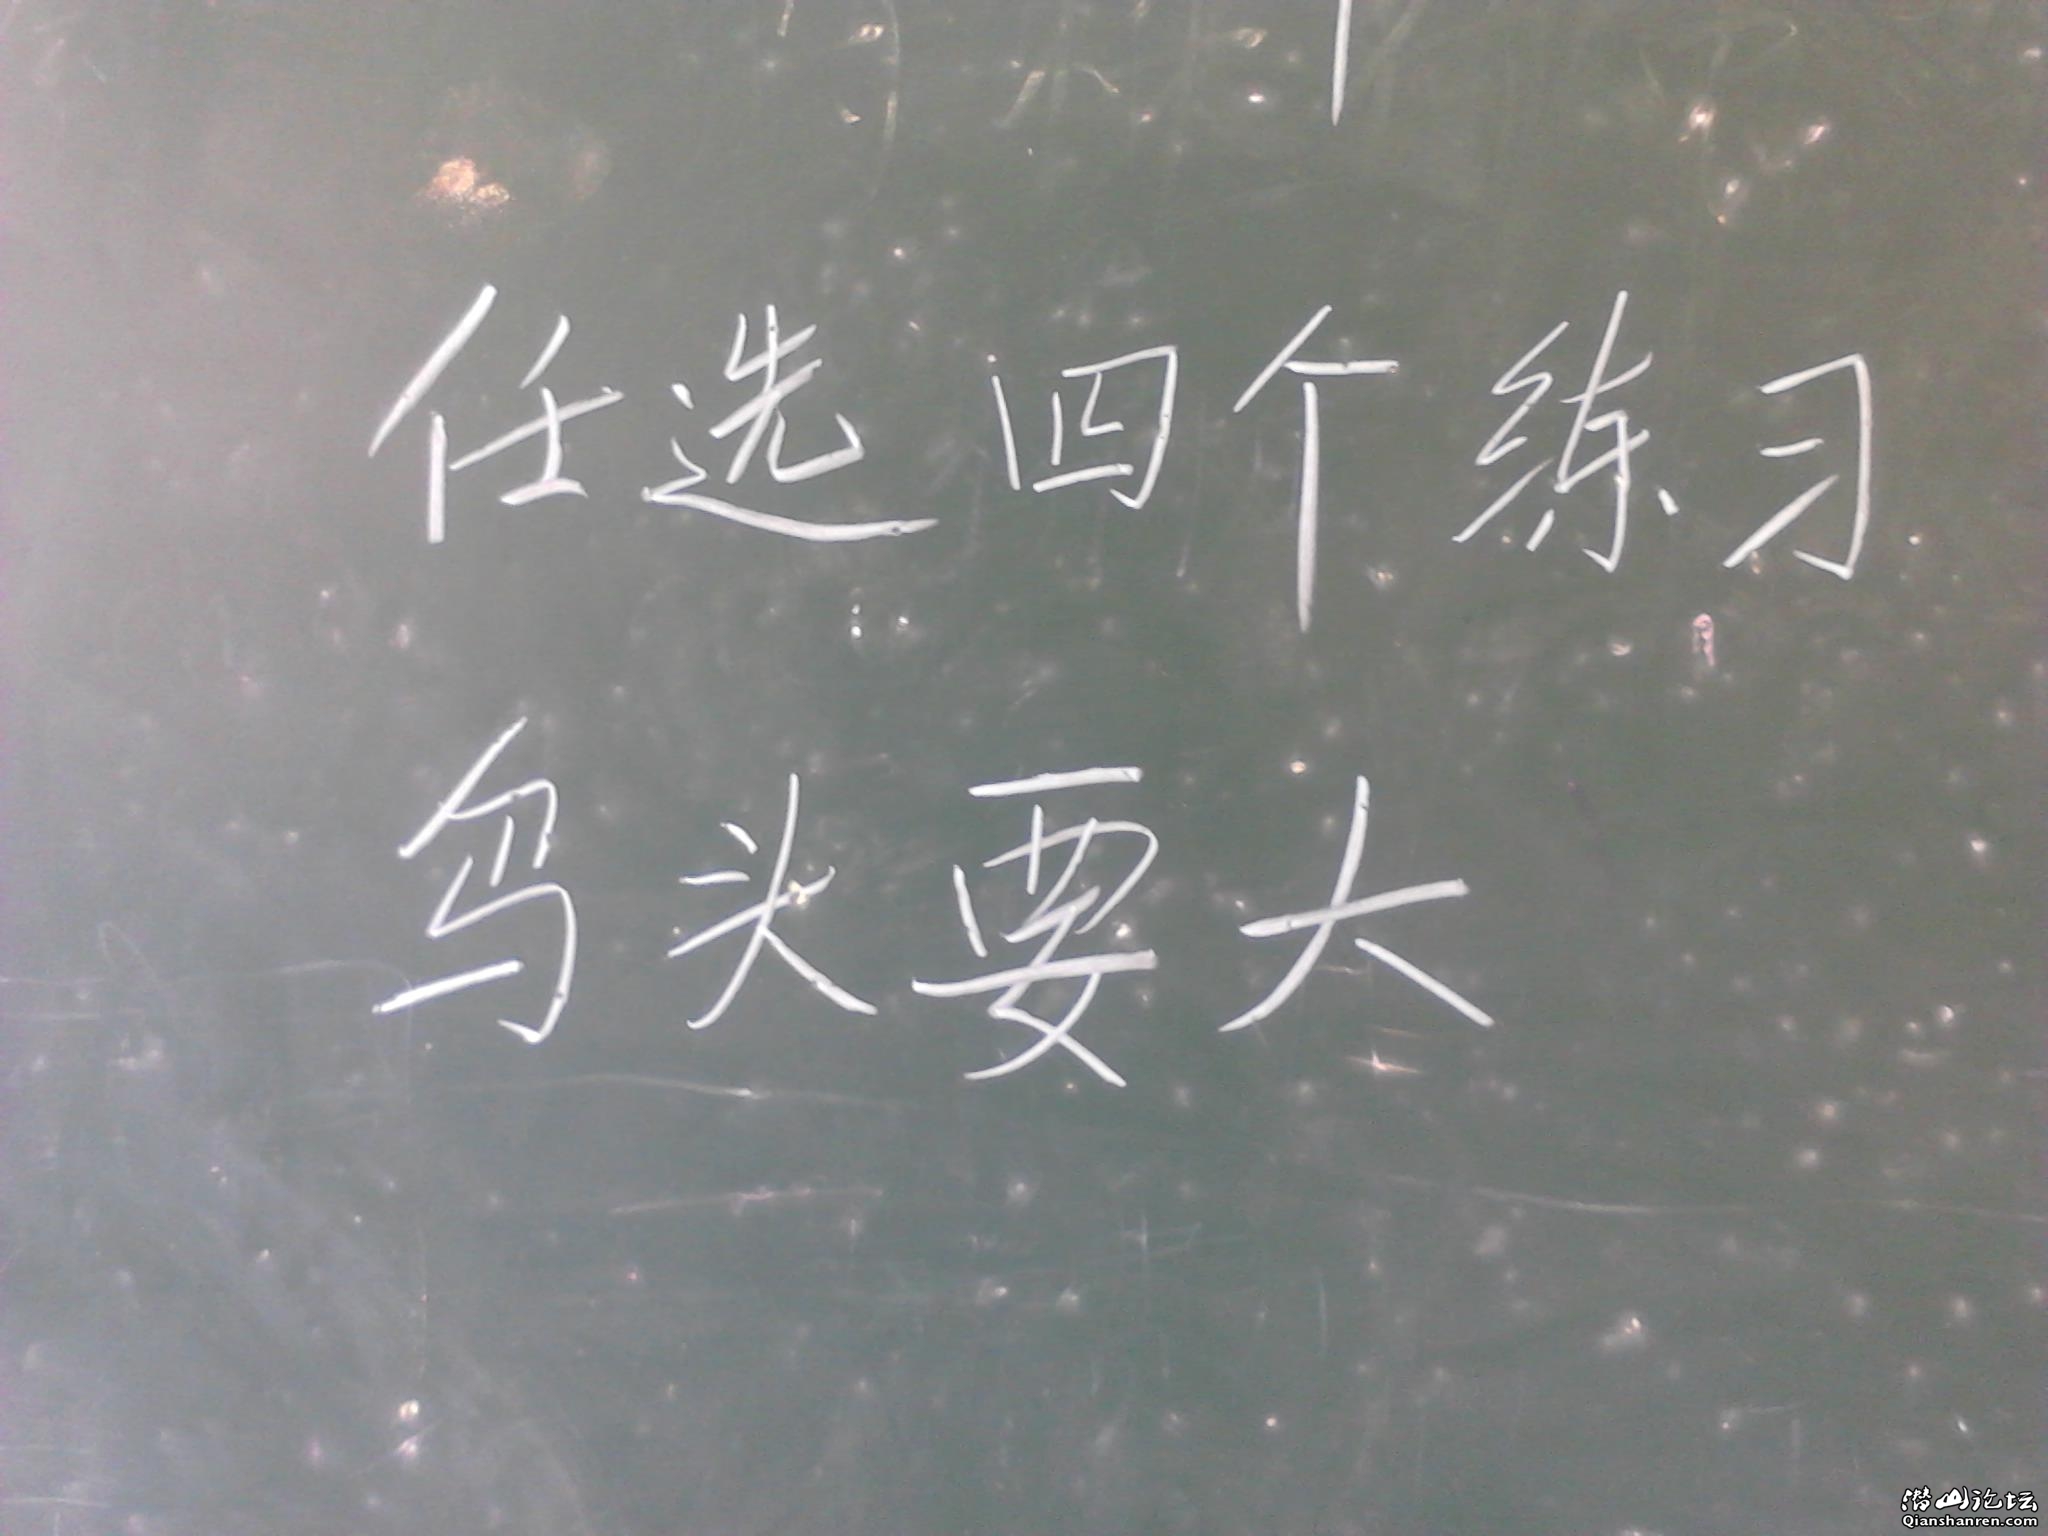 任选四个练习
鸟头要大
潜山论坛
Qianshanren.com